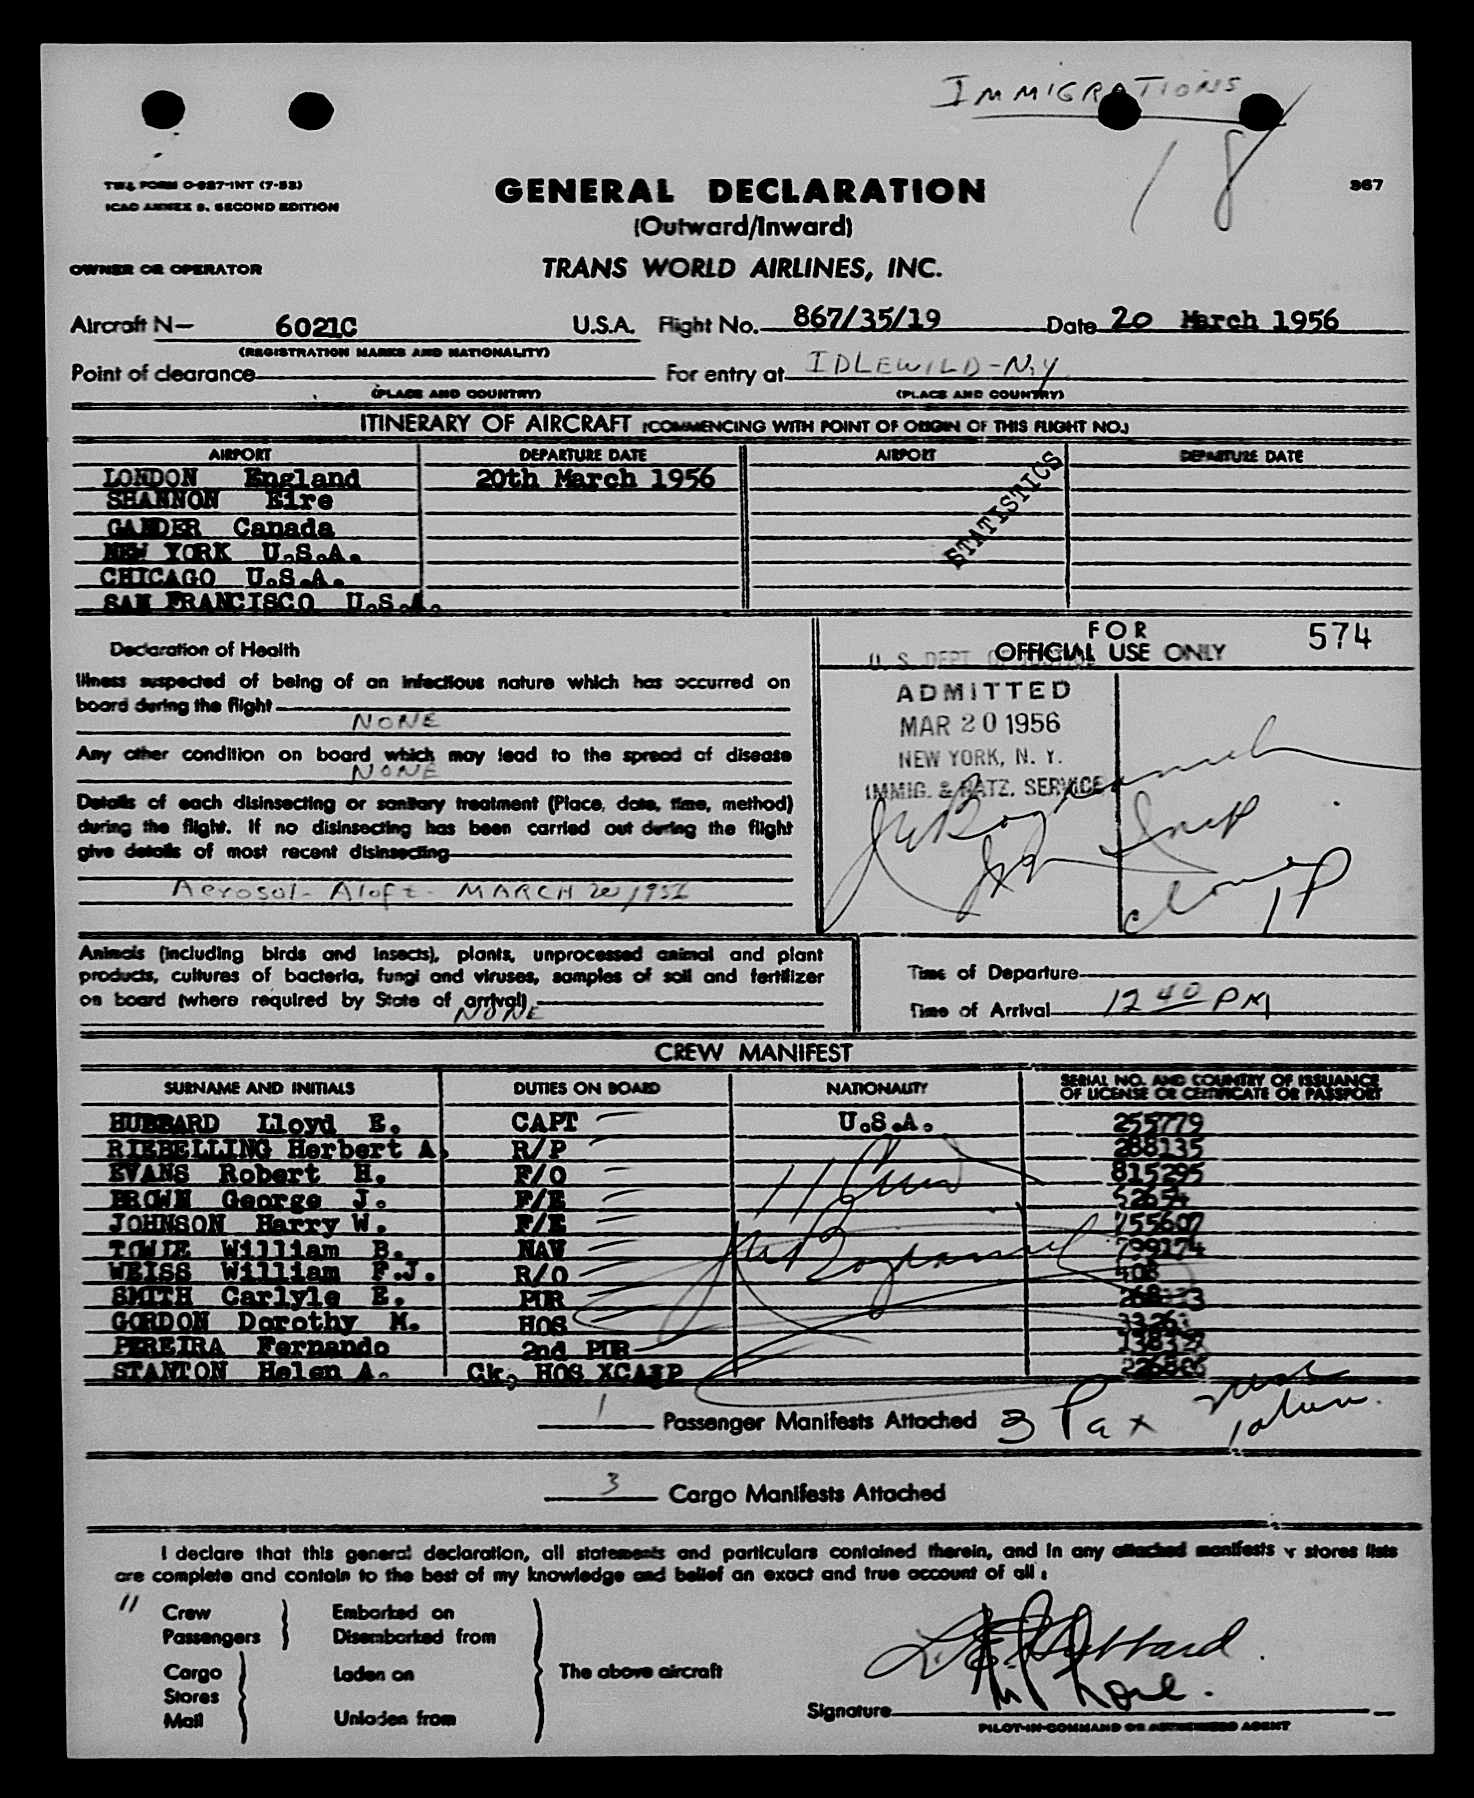 IMMIGRATIONS
18
TWA FORM O-827-INT (7-53)
ICAO ANNEX 9, SECOND EDITION
GENERAL DECLARATION
867
(Outward/Inward)
OWNER OR OPERATOR
TRANS WORLD AIRLINES, INC.
Aircraft N— 6021C U.S.A. Flight No. 867/35/19 Date 20 March 1956
(REGISTRATION MARKS AND NATIONALITY)
Point of clearance For entry at IDLEWILD-N.Y
(PLACE AND COUNTRY) (PLACE AND COUNTRY)
ITINERARY OF AIRCRAFT (COMMENCING WITH POINT OF ORIGIN OF THIS FLIGHT NO.)
AIRPORT DEPARTURE DATE AIRPORT DEPARTURE DATE
LONDON England 20th March 1956
SHANNON Eire
GANDER Canada
NEW YORK U.S.A.
CHICAGO U.S.A.
SAN FRANCISCO U.S.A.
STATISTICS
Declaration of Health
Illness suspected of being of an infectious nature which has occurred on
board during the flight
NONE
Any other condition on board which may lead to the spread of disease
NONE
Details of each disinsecting or sanitary treatment (Place, date, time, method)
during the flight. If no disinsecting has been carried out during the flight
give details of most recent disinsecting
Aerosol - Aloft - MARCH 20/1956
FOR
OFFICIAL USE ONLY
574
U. S. DEPT. OF
ADMITTED
MAR 20 1956
NEW YORK, N. Y.
IMMIG. & NATZ. SERVICE
Insp
Animals (including birds and insects), plants, unprocessed animal and plant
products, cultures of bacteria, fungi and viruses, samples of soil and fertilizer
on board (where required by State of arrival)
NONE
Time of Departure
Time of Arrival 12 40 PM
CREW MANIFEST
SURNAME AND INITIALS DUTIES ON BOARD NATIONALITY SERIAL NO. AND COUNTRY OF ISSUANCE
OF LICENSE OR CERTIFICATE OR PASSPORT
HUBBARD Lloyd E. CAPT U.S.A. 255779
RIEBELLING Herbert A. R/P 288135
EVANS Robert H. F/O 815295
BROWN George J. F/E 52654
JOHNSON Harry W. F/E 255607
TOWLE William B. NAV 299174
WEISS William F.J. R/O 408
SMITH Carlyle E. PUR
GORDON Dorothy M. HOS
PEREIRA Fernando 2nd PUR
STANTON Helen A. Ck. HOS
1 Passenger Manifests Attached 3 Pax
3 Cargo Manifests Attached
I declare that this general declaration, all statements and particulars contained therein, and in any attached manifests r stores lists
are complete and contain to the best of my knowledge and belief an exact and true account of all:
11 Crew
Passengers
Embarked on
Disembarked from
Cargo
Stores
Mail
Laden on
Unladen from
The above aircraft
L. E. Hubbard
Signature
PILOT-IN-COMMAND OR AUTHORIZED AGENT